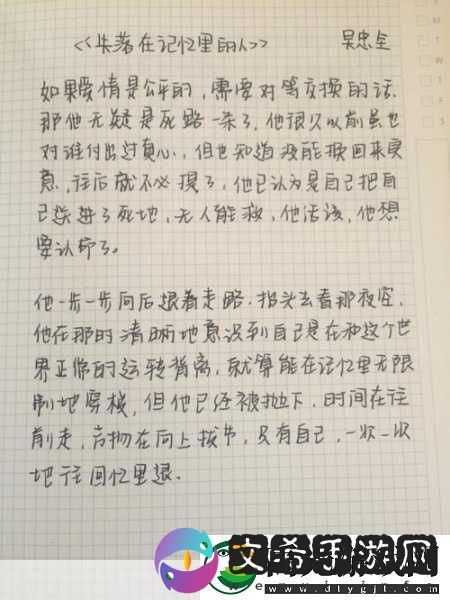 《失落在记忆里的人》 吴忠全
如果爱情是公平的，需要对等交换的话，
那他无疑是死路一条了，他很久以前虽也
对谁付出过真心，但也知道没能换回来更
意，往后就不必提了，他已认为是自己把自
己送进了死地，无人能救，他活该，他想
要认命了。
他一步一步向后退着走路，抬头去看那夜空，
他在那时清晰地意识到自己是在和这个世
界正常的运转背离，就算能在记忆里无限
制地穿梭，但他已经被抛下，时间在往
前走，万物在向上拔节，只有自己，一次一次
地往回忆里退。
文希手游网
www.dtygjt.com